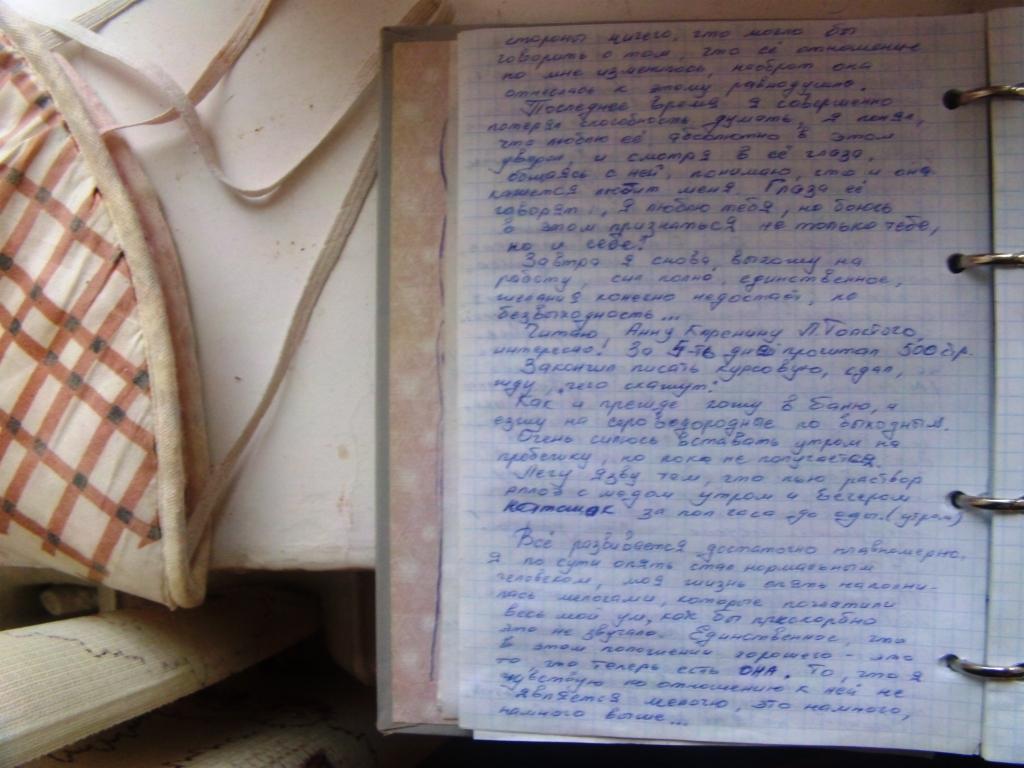 стороны ничего, что могло бы
говорить о том, что её отношение
ко мне изменилось, наоброт она
отнеслась к этому равнодушно.
Последнее время я совершенно
потерял способность думать, я понял,
что люблю её, абсолютно в этом
уверен, и смотря в её глаза,
общаясь с ней, понимаю, что и она
кажется любит меня. Глаза её
говорят: я люблю тебя, но боюсь
в этом признаться не только тебе,
но и себе!
Завтра я снова выхожу на
работу, сил полно, единственное,
желания конечно недостаёт, но
безвыходность...
Читаю Анну Каренину Л Толстого,
интересно! За 5-ть дней прочитал 500 стр.
Закончил писать курсовую, сдал,
жду, чего скажут.
Как и прежде хожу в баню, и
езжу на сероводородные по выходным.
Очень силюсь вставать утром на
пробежку, но пока не получается.
Лечу язву тем, что пью раствор
алоэ с медом утром и вечером
натощак за пол часа до еды. (утром)
Всё развивается достаточно планомерно,
я по сути опять стал нормальным
человеком, моя жизнь опять наполни-
лась мелочами, которые поглотили
весь мой ум, как бы прискорбно
это не звучало. Единственное, что
в этом положении хорошего - это
то, что теперь есть ОНА. То, что я
чувствую по отношению к ней не
является мелочью, это намного,
намного выше...